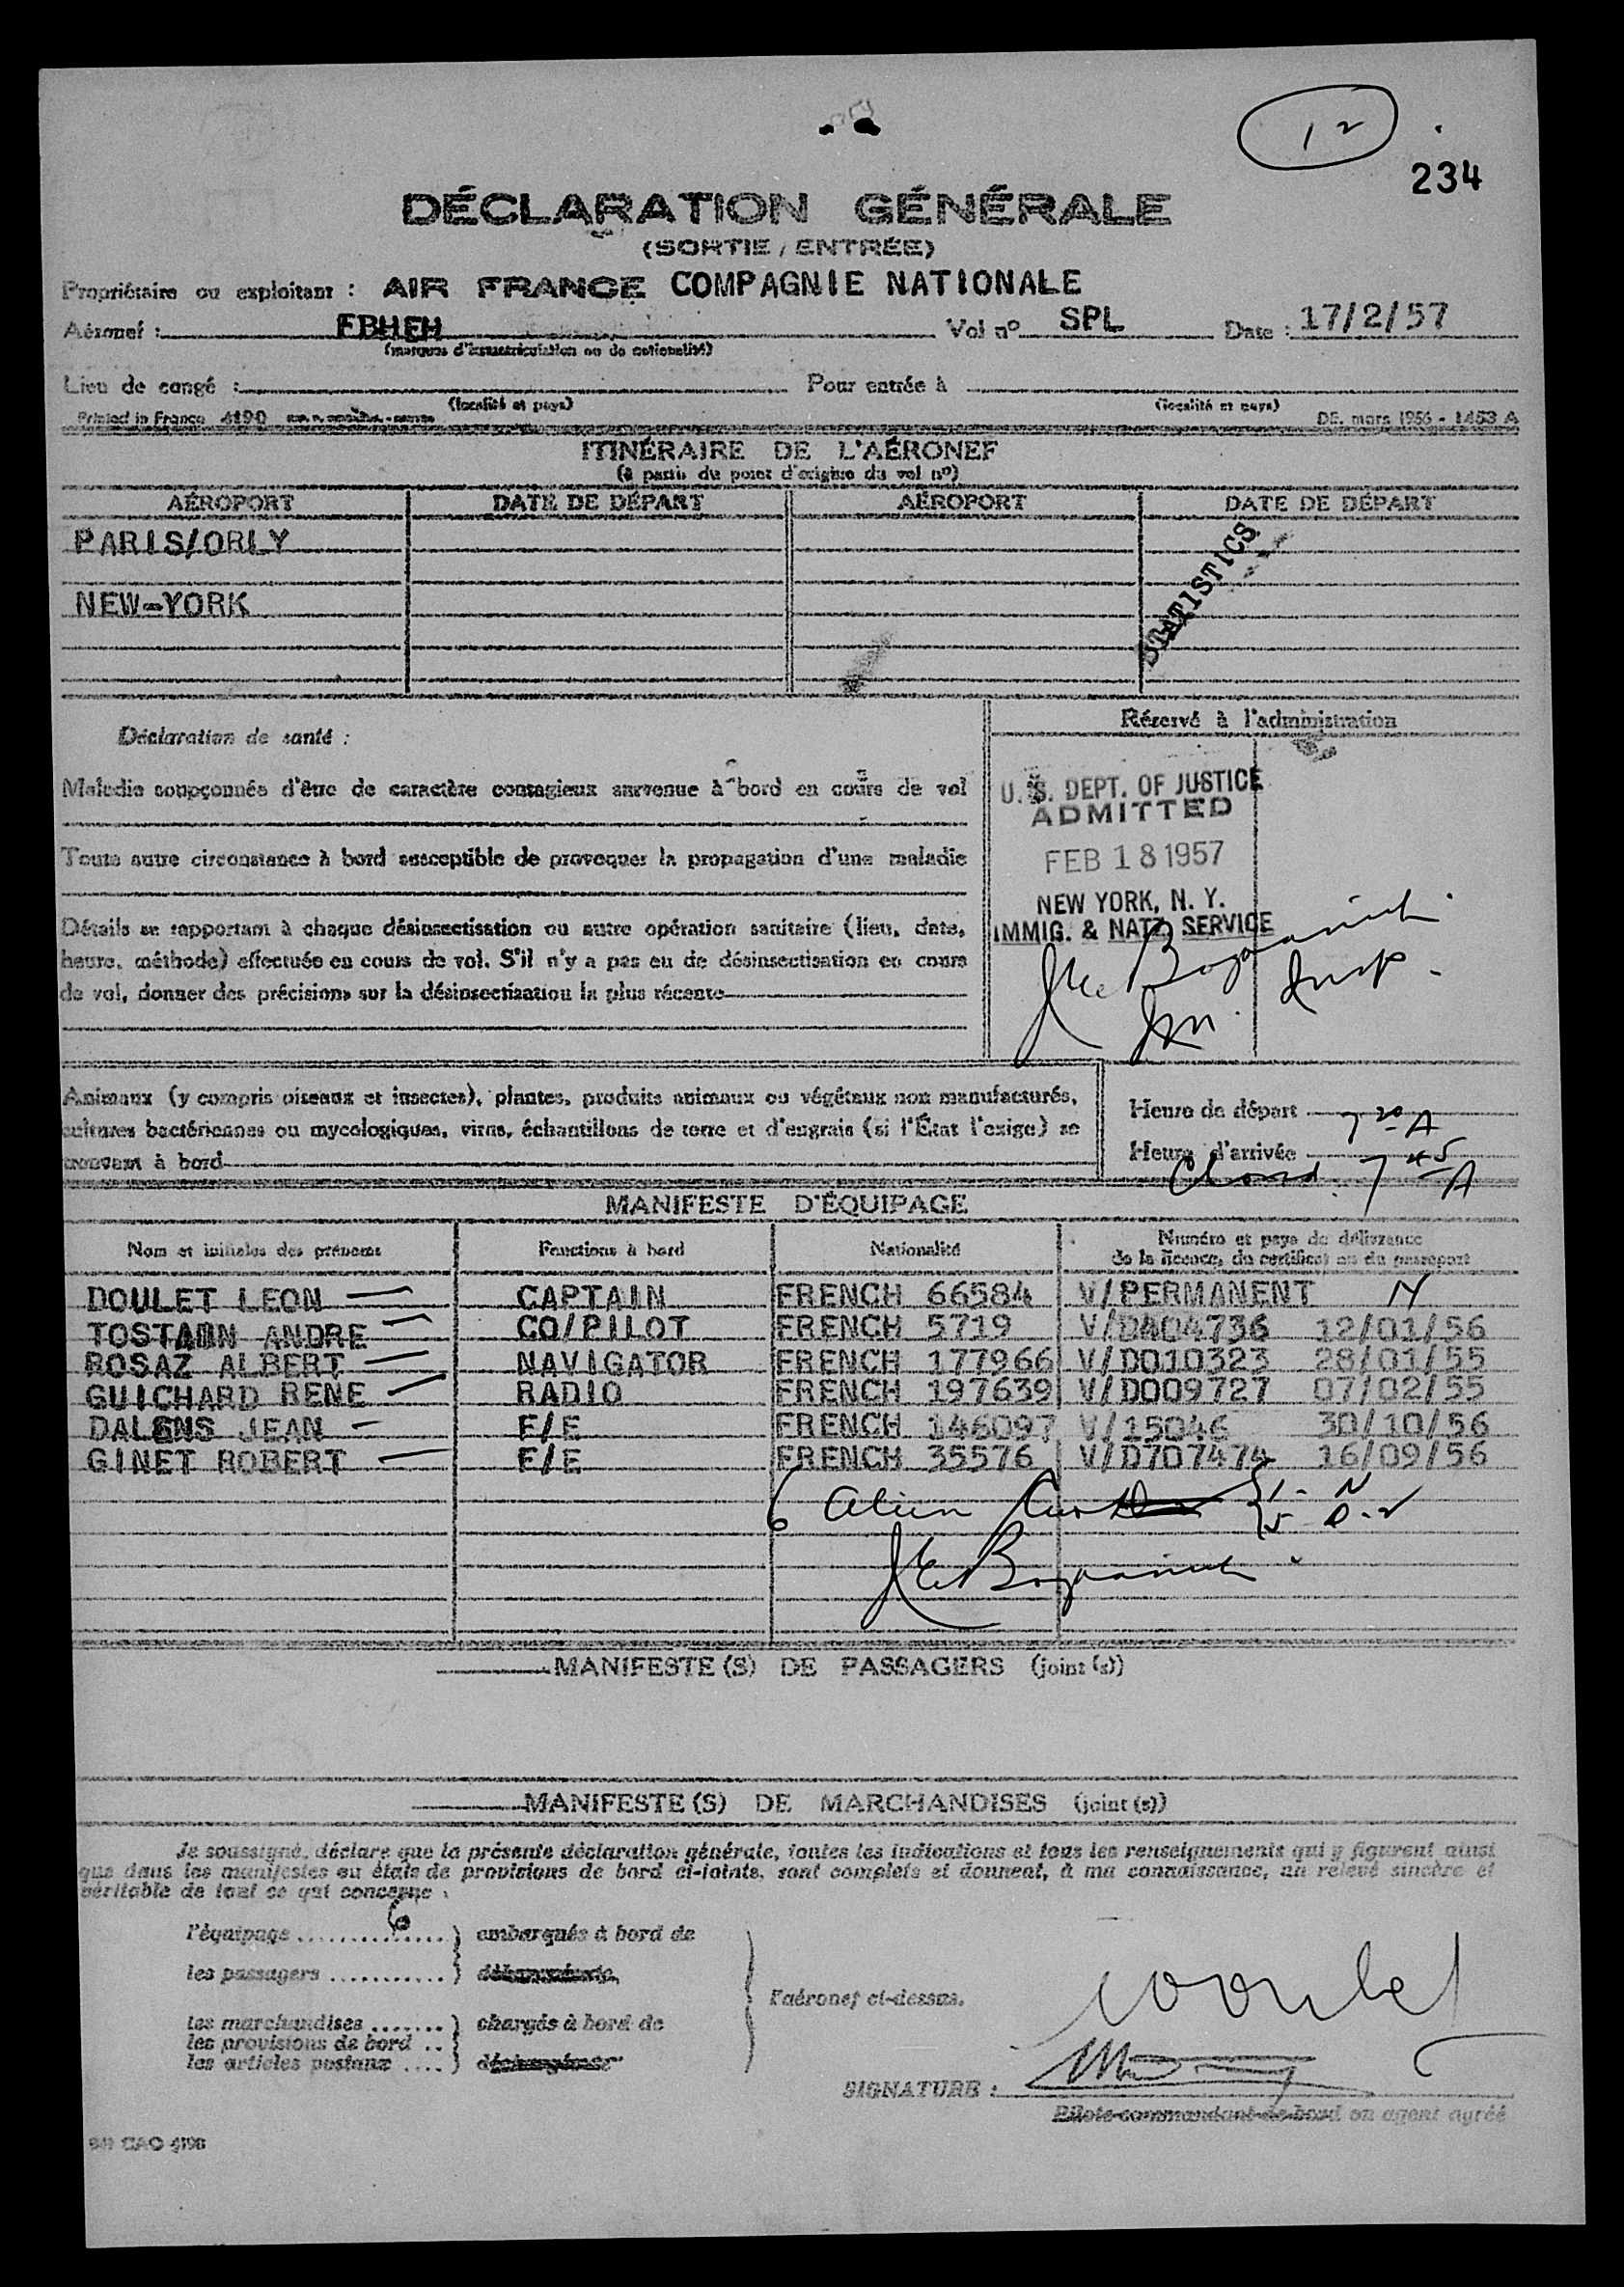 12
234
DÉCLARATION GÉNÉRALE
(SORTIE / ENTRÉE)
Propriétaire ou exploitant : AIR FRANCE COMPAGNIE NATIONALE
Aéronef : FBHEH Vol nº SPL Date : 17/2/57
(marques d'immatriculation ou de nationalité)
Lieu de congé : Pour entrée à
(localité et pays) (localité et pays)
Printed in France 4190 DE. mars 1956 - 1453 A
ITINÉRAIRE DE L'AÉRONEF
(à partir du point d'origine du vol nº)
AÉROPORT DATE DE DÉPART AÉROPORT DATE DE DÉPART
PARIS/ORLY
NEW-YORK
STATISTICS
Réservé à l'administration
Déclaration de santé :
Maladie soupçonnée d'être de caractère contagieux survenue à bord en cours de vol
Toute autre circonstance à bord susceptible de provoquer la propagation d'une maladie
Détails se rapportant à chaque désinsectisation ou autre opération sanitaire (lieu, date,
heure, méthode) effectuée en cours de vol. S'il n'y a pas eu de désinsectisation en cours
de vol, donner des précisions sur la désinsectisation la plus récente
U. S. DEPT. OF JUSTICE
ADMITTED
FEB 18 1957
NEW YORK, N. Y.
IMMIG. & NATZ. SERVICE
Insp.
Animaux (y compris oiseaux et insectes), plantes, produits animaux ou végétaux non manufacturés,
cultures bactériennes ou mycologiques, virus, échantillons de terre et d'engrais (si l'État l'exige) se
trouvant à bord
Heure de départ 7 20 A
Heure d'arrivée
7 45 A
MANIFESTE D'ÉQUIPAGE
Nom et initiales des prénoms Fonctions à bord Nationalité Numéro et pays de délivrance
de la licence, du certificat ou du passeport
DOULET LEON CAPTAIN FRENCH 66584 V/PERMANENT N
TOSTAIN ANDRE CO/PILOT FRENCH 5719 V/D404736 12/01/56
ROSAZ ALBERT NAVIGATOR FRENCH 177966 V/D010323 28/01/55
GUICHARD RENE RADIO FRENCH 197639 V/D009727 07/02/55
DALENS JEAN F/E FRENCH 146097 V/15046 30/10/56
GINET ROBERT F/E FRENCH 35576 V/D707474 16/09/56
6 Alien
1 - N
5 - D-2
MANIFESTE(S) DE PASSAGERS (joint(s))
MANIFESTE(S) DE MARCHANDISES (joint(s))
Je soussigné, déclare que la présente déclaration générale, toutes les indications et tous les renseignements qui y figurent ainsi
que dans les manifestes ou états de provisions de bord ci-joints, sont complets et donnent, à ma connaissance, un relevé sincère et
véritable de tout ce qui concerne :
l'équipage 6 embarqués à bord de
les passagers
l'aéronef ci-dessus.
les marchandises chargés à bord de
les provisions de bord
les articles postaux
SIGNATURE :
Pilote commandant de bord ou agent agréé